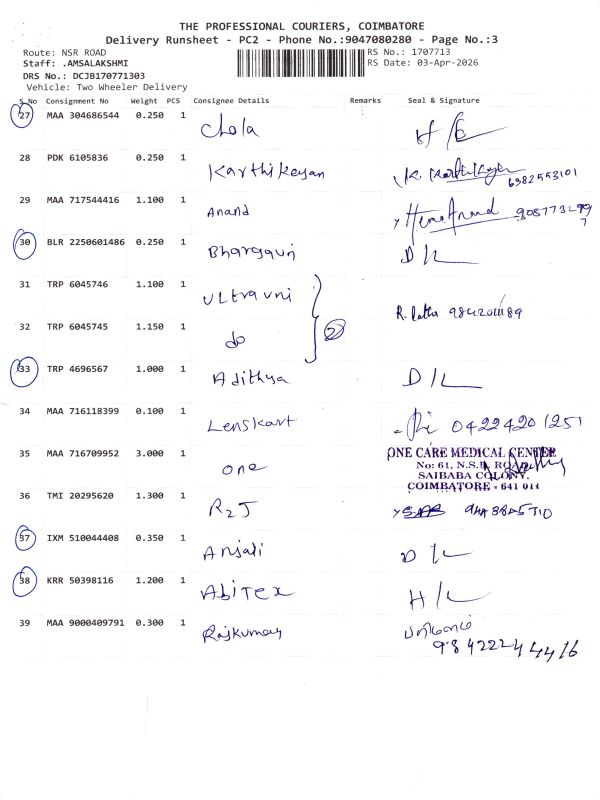 THE PROFESSIONAL COURIERS, COIMBATORE
Delivery Runsheet - PC2 - Phone No.:9047080280 - Page No.:3
Route: NSR ROAD RS No.: 1707713
Staff: .AMSALAKSHMI RS Date: 03-Apr-2026
DRS No.: DCJB170771303
Vehicle: Two Wheeler Delivery
S No Consignment No Weight PCS Consignee Details Remarks Seal & Signature
27 MAA 304686544 0.250 1 Chola
28 PDK 6105836 0.250 1 Karthikeyan K. Karthikeyan 6382553101
29 MAA 717544416 1.100 1 Anand Hema Anand
30 BLR 2250601486 0.250 1 Bhargavi D/L
31 TRP 6045746 1.100 1 Ultravni
32 TRP 6045745 1.150 1 do 2
33 TRP 4696567 1.000 1 Adithya D/L
34 MAA 716118399 0.100 1 Lenskart 0422420 1251
35 MAA 716709952 3.000 1 One ONE CARE MEDICAL CENTER
No: 61, N.S.R. ROAD,
SAIBABA COLONY,
COIMBATORE - 641 011
36 TMI 20295620 1.300 1 R2J
37 IXM 510044408 0.350 1 Anjali D/L
38 KRR 50398116 1.200 1 Abitex H/L
39 MAA 9000409791 0.300 1 Rajkumar
9842224 4416